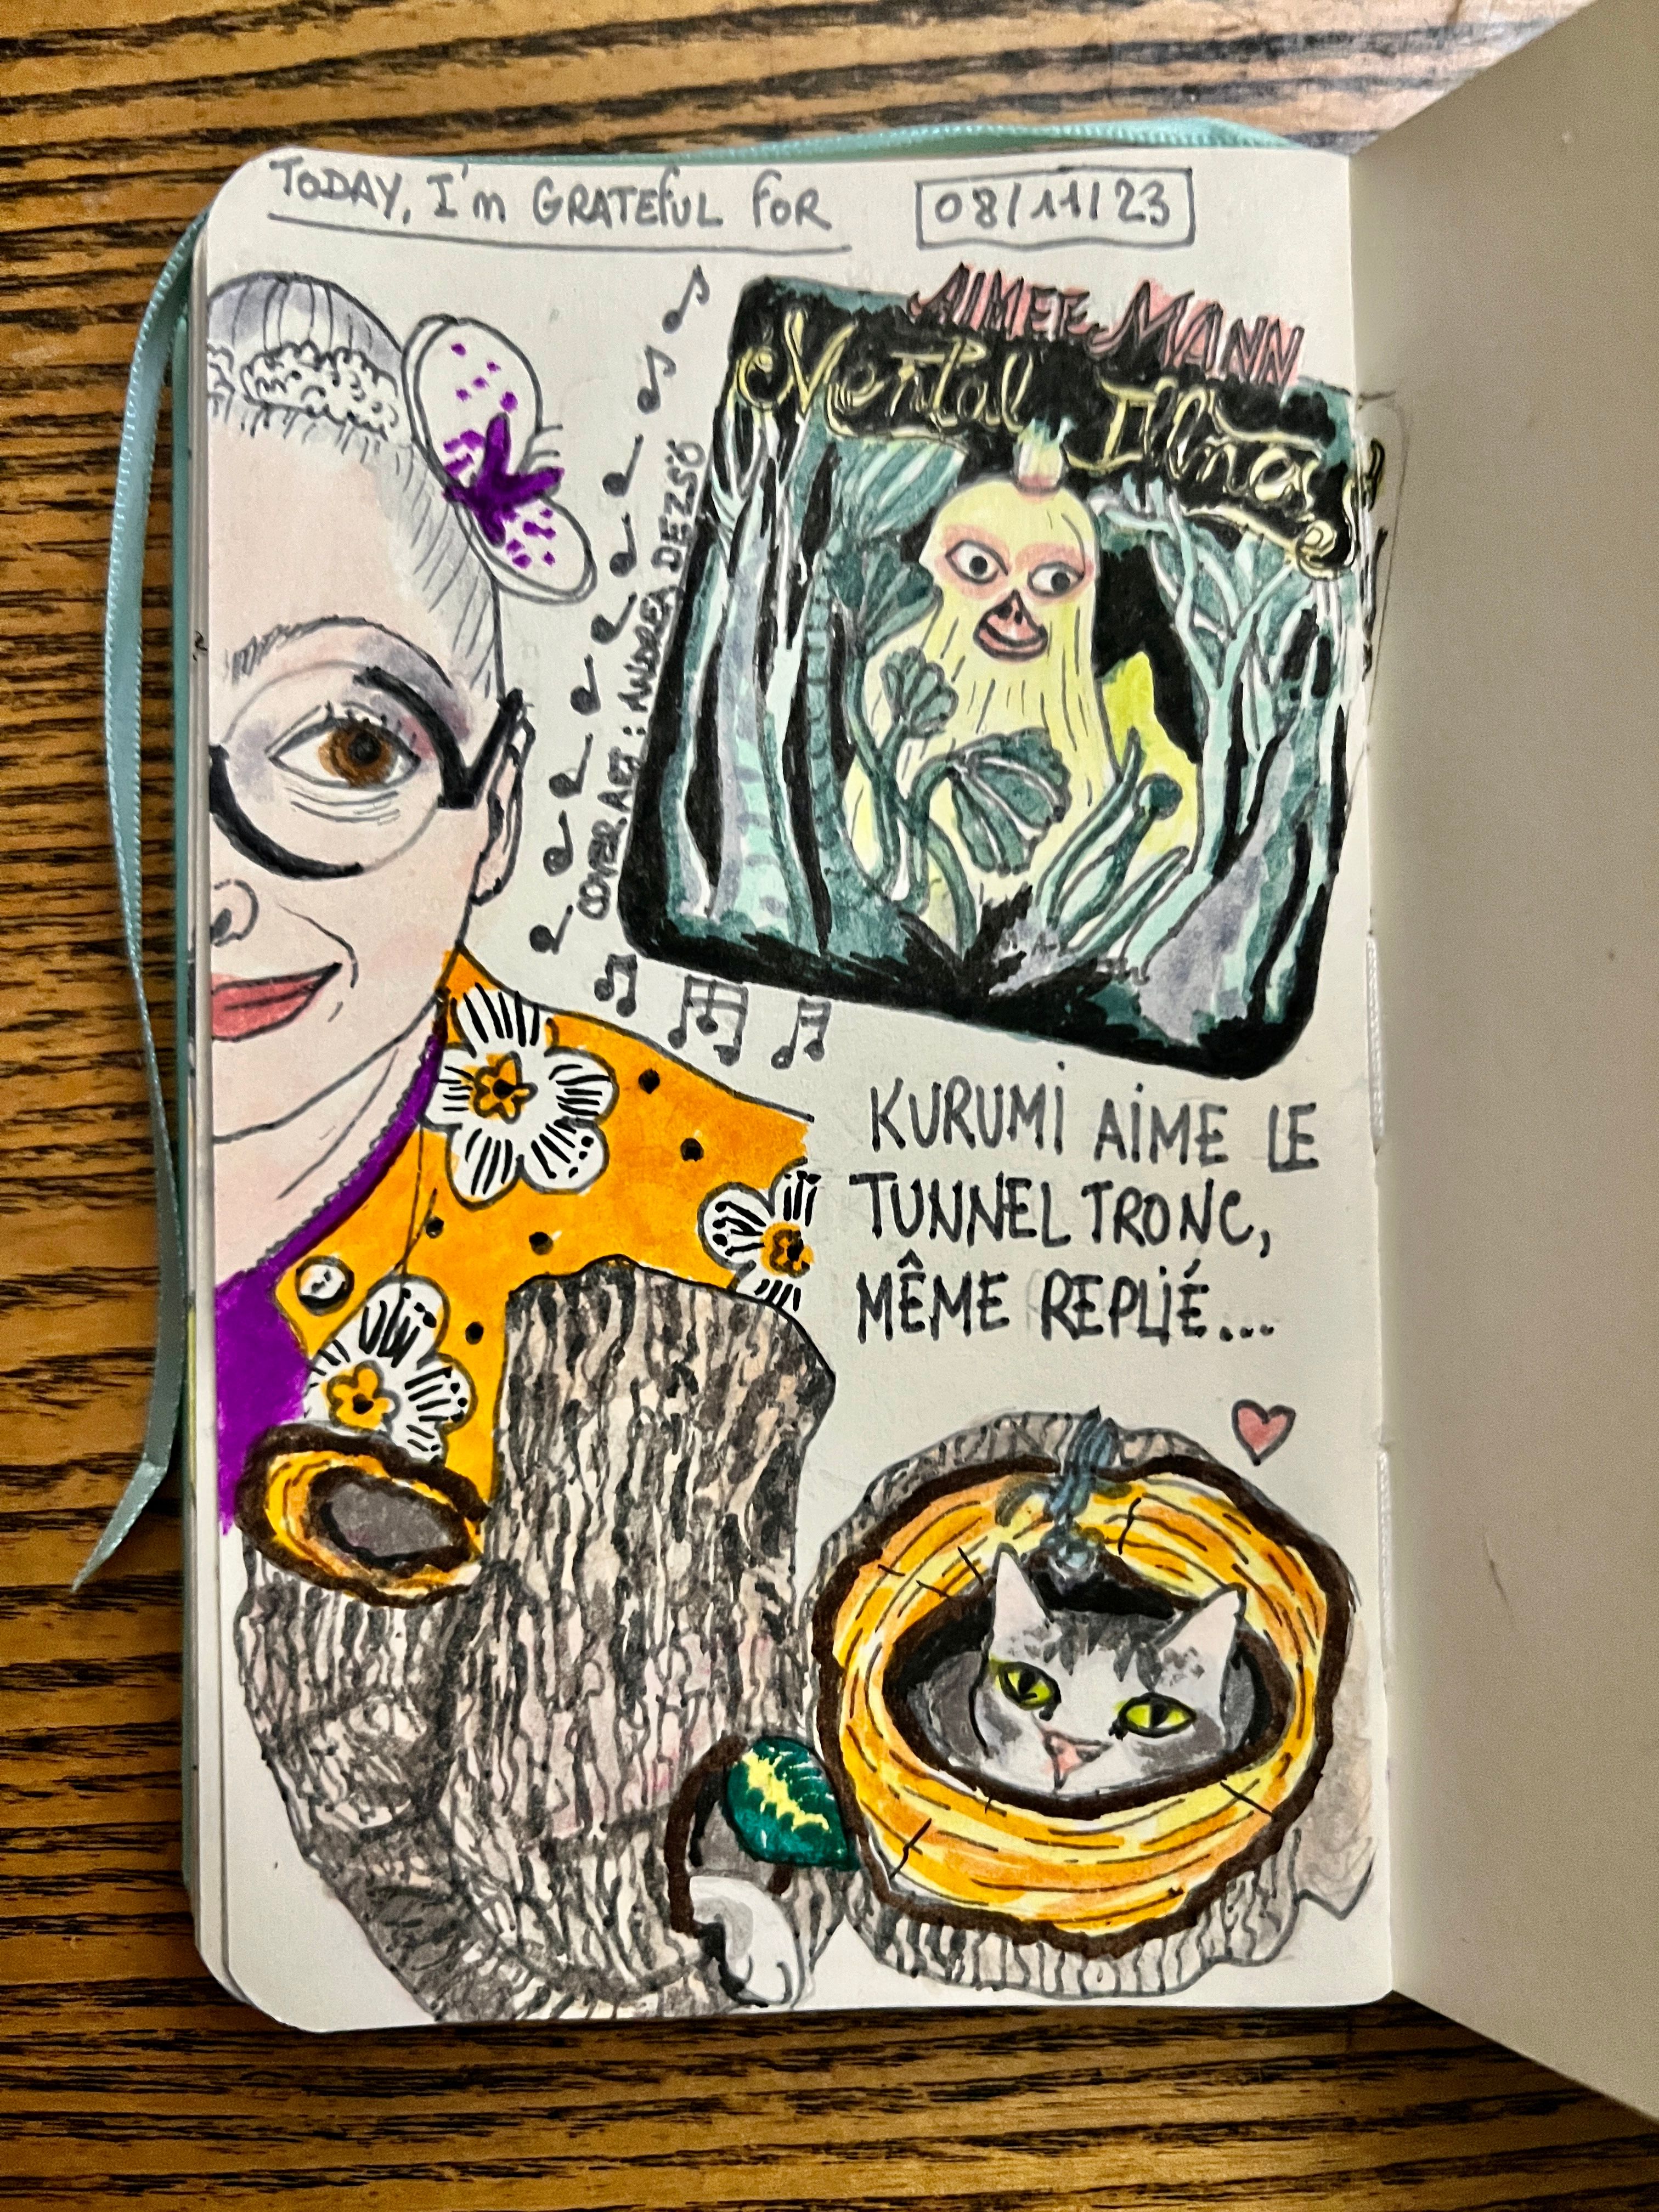 TODAY, I'm GRATEFUL FOR
08/11/23
AIMEE MANN
Mental Illness
COVER ART : ANDREA DEZSÖ
KURUMI AIME LE
TUNNEL TRONC,
MÊME REPLIÉ...